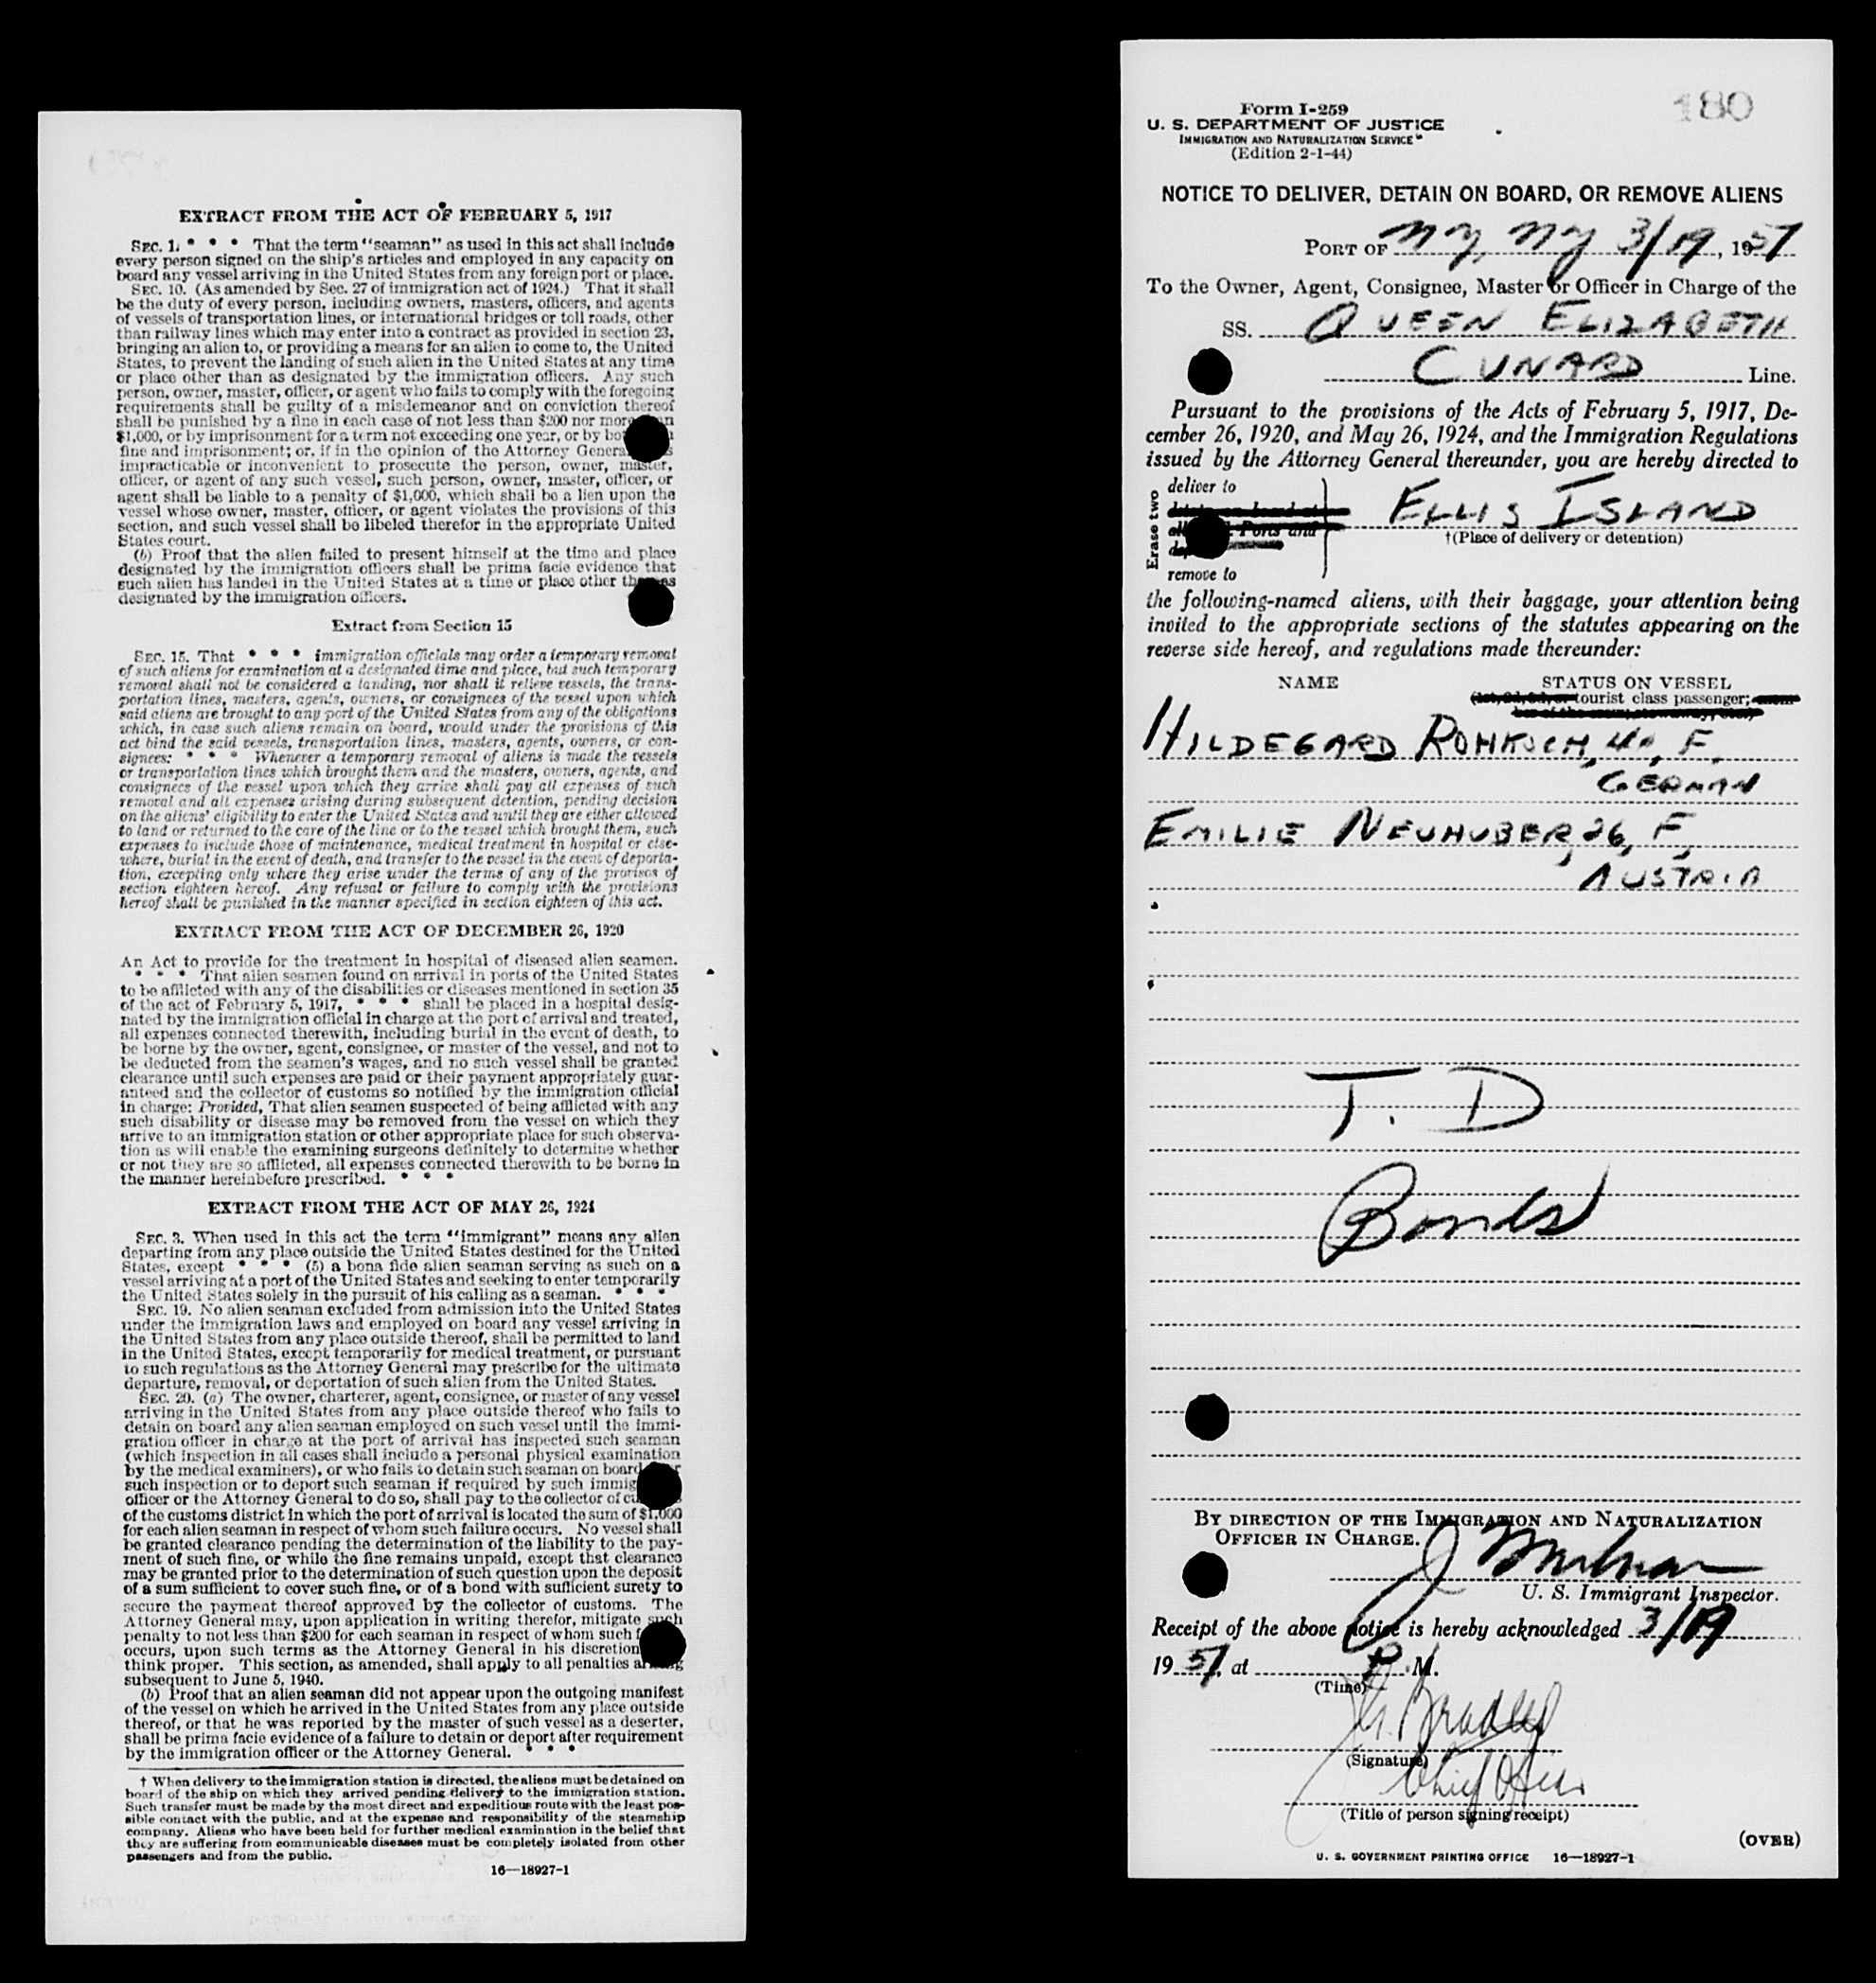 EXTRACT FROM THE ACT OF FEBRUARY 5, 1917
SEC. 1. * * * That the term "seaman" as used in this act shall include
every person signed on the ship's articles and employed in any capacity on
board any vessel arriving in the United States from any foreign port or place.
SEC. 10. (As amended by Sec. 27 of immigration act of 1924.) That it shall
be the duty of every person, including owners, masters, officers, and agents
of vessels of transportation lines, or international bridges or toll roads, other
than railway lines which may enter into a contract as provided in section 23,
bringing an alien to, or providing a means for an alien to come to, the United
States, to prevent the landing of such alien in the United States at any time
or place other than as designated by the immigration officers. Any such
person, owner, master, officer, or agent who fails to comply with the foregoing
requirements shall be guilty of a misdemeanor and on conviction thereof
shall be punished by a fine in each case of not less than $200 nor more
$1,000, or by imprisonment for a term not exceeding one year, or by
fine and imprisonment; or, if in the opinion of the Attorney
impracticable or inconvenient to prosecute the person, owner, master,
officer, or agent of any such vessel, such person, owner, master, officer, or
agent shall be liable to a penalty of $1,000, which shall be a lien upon the
vessel whose owner, master, officer, or agent violates the provisions of this
section, and such vessel shall be libeled therefor in the appropriate United
States court.
(b) Proof that the alien failed to present himself at the time and place
designated by the immigration officers shall be prima facie evidence that
such alien has landed in the United States at a time or place other
designated by the immigration officers.
Extract from Section 15
SEC. 15. That * * * immigration officials may order a temporary removal
of such aliens for examination at a designated time and place, but such temporary
removal shall not be considered a landing, nor shall it relieve vessels, the trans-
portation lines, masters, agents, owners, or consignees of the vessel upon which
said aliens are brought to any port of the United States from any of the obligations
which, in case such aliens remain on board, would under the provisions of this
act bind the said vessels, transportation lines, masters, agents, owners, or con-
signees: * * * Whenever a temporary removal of aliens is made the vessels
or transportation lines which brought them and the masters, owners, agents, and
consignees of the vessel upon which they arrive shall pay all expenses of such
removal and all expenses arising during subsequent detention, pending decision
on the aliens' eligibility to enter the United States and until they are either allowed
to land or returned to the care of the line or to the vessel which brought them, such
expenses to include those of maintenance, medical treatment in hospital or else-
where, burial in the event of death, and transfer to the vessel in the event of deporta-
tion, excepting only where they arise under the terms of any of the provisos of
section eighteen hereof. Any refusal or failure to comply with the provisions
hereof shall be punished in the manner specified in section eighteen of this act.
EXTRACT FROM THE ACT OF DECEMBER 26, 1920
An Act to provide for the treatment in hospital of diseased alien seamen.
* * * That alien seamen found on arrival in ports of the United States
to be afflicted with any of the disabilities or diseases mentioned in section 35
of the act of February 5, 1917, * * * shall be placed in a hospital desig-
nated by the immigration official in charge at the port of arrival and treated,
all expenses connected therewith, including burial in the event of death, to
be borne by the owner, agent, consignee, or master of the vessel, and not to
be deducted from the seamen's wages, and no such vessel shall be granted
clearance until such expenses are paid or their payment appropriately guar-
anteed and the collector of customs so notified by the immigration official
in charge: Provided, That alien seamen suspected of being afflicted with any
such disability or disease may be removed from the vessel on which they
arrive to an immigration station or other appropriate place for such observa-
tion as will enable the examining surgeons definitely to determine whether
or not they are so afflicted, all expenses connected therewith to be borne in
the manner hereinbefore prescribed. * * *
EXTRACT FROM THE ACT OF MAY 26, 1924
SEC. 3. When used in this act the term "immigrant" means any alien
departing from any place outside the United States destined for the United
States, except * * * (5) a bona fide alien seaman serving as such on a
vessel arriving at a port of the United States and seeking to enter temporarily
the United States solely in the pursuit of his calling as a seaman. * * *
SEC. 19. No alien seaman excluded from admission into the United States
under the immigration laws and employed on board any vessel arriving in
the United States from any place outside thereof, shall be permitted to land
in the United States, except temporarily for medical treatment, or pursuant
to such regulations as the Attorney General may prescribe for the ultimate
departure, removal, or deportation of such alien from the United States.
SEC. 20. (a) The owner, charterer, agent, consignee, or master of any vessel
arriving in the United States from any place outside thereof who fails to
detain on board any alien seaman employed on such vessel until the immi-
gration officer in charge at the port of arrival has inspected such seaman
(which inspection in all cases shall include a personal physical examination
by the medical examiners), or who fails to detain such seaman on board
such inspection or to deport such seaman if required by such
officer or the Attorney General to do so, shall pay to the collector of
of the customs district in which the port of arrival is located the sum of $1,000
for each alien seaman in respect of whom such failure occurs. No vessel shall
be granted clearance pending the determination of the liability to the pay-
ment of such fine, or while the fine remains unpaid, except that clearance
may be granted prior to the determination of such question upon the deposit
of a sum sufficient to cover such fine, or of a bond with sufficient surety to
secure the payment thereof approved by the collector of customs. The
Attorney General may, upon application in writing therefor, mitigate such
penalty to not less than $200 for each seaman in respect of whom such
occurs, upon such terms as the Attorney General in his discretion
think proper. This section, as amended, shall apply to all penalties
subsequent to June 5, 1940.
(b) Proof that an alien seaman did not appear upon the outgoing manifest
of the vessel on which he arrived in the United States from any place outside
thereof, or that he was reported by the master of such vessel as a deserter,
shall be prima facie evidence of a failure to detain or deport after requirement
by the immigration officer or the Attorney General. * * *
† When delivery to the immigration station is directed, the aliens must be detained on
board of the ship on which they arrived pending delivery to the immigration station.
Such transfer must be made by the most direct and expeditious route with the least pos-
sible contact with the public, and at the expense and responsibility of the steamship
company. Aliens who have been held for further medical examination in the belief that
they are suffering from communicable diseases must be completely isolated from other
passengers and from the public.
16—18927-1
180
Form I-259
U. S. DEPARTMENT OF JUSTICE
IMMIGRATION AND NATURALIZATION SERVICE
(Edition 2-1-44)
NOTICE TO DELIVER, DETAIN ON BOARD, OR REMOVE ALIENS
PORT OF NY, NY 3/19, 1951
To the Owner, Agent, Consignee, Master or Officer in Charge of the
SS. QUEEN ELIZABETH
CUNARD Line.
Pursuant to the provisions of the Acts of February 5, 1917, De-
cember 26, 1920, and May 26, 1924, and the Immigration Regulations
issued by the Attorney General thereunder, you are hereby directed to
Erase two
deliver to
Ports and
remove to
ELLIS ISLAND
†(Place of delivery or detention)
the following-named aliens, with their baggage, your attention being
invited to the appropriate sections of the statutes appearing on the
reverse side hereof, and regulations made thereunder:
NAME STATUS ON VESSEL
tourist class passenger;
HILDEGARD F,
GERMAN
EMILIE NEUHUBER, 26, F,
AUSTRIA
T. D
Bonds
BY DIRECTION OF THE IMMIGRATION AND NATURALIZATION
OFFICER IN CHARGE.
J
U. S. Immigrant Inspector.
Receipt of the above notice is hereby acknowledged 3/19
1951, at P. M.
(Time)
Bradley
(Signature)
Chief
(Title of person signing receipt)
(OVER)
U. S. GOVERNMENT PRINTING OFFICE 16—18927-1